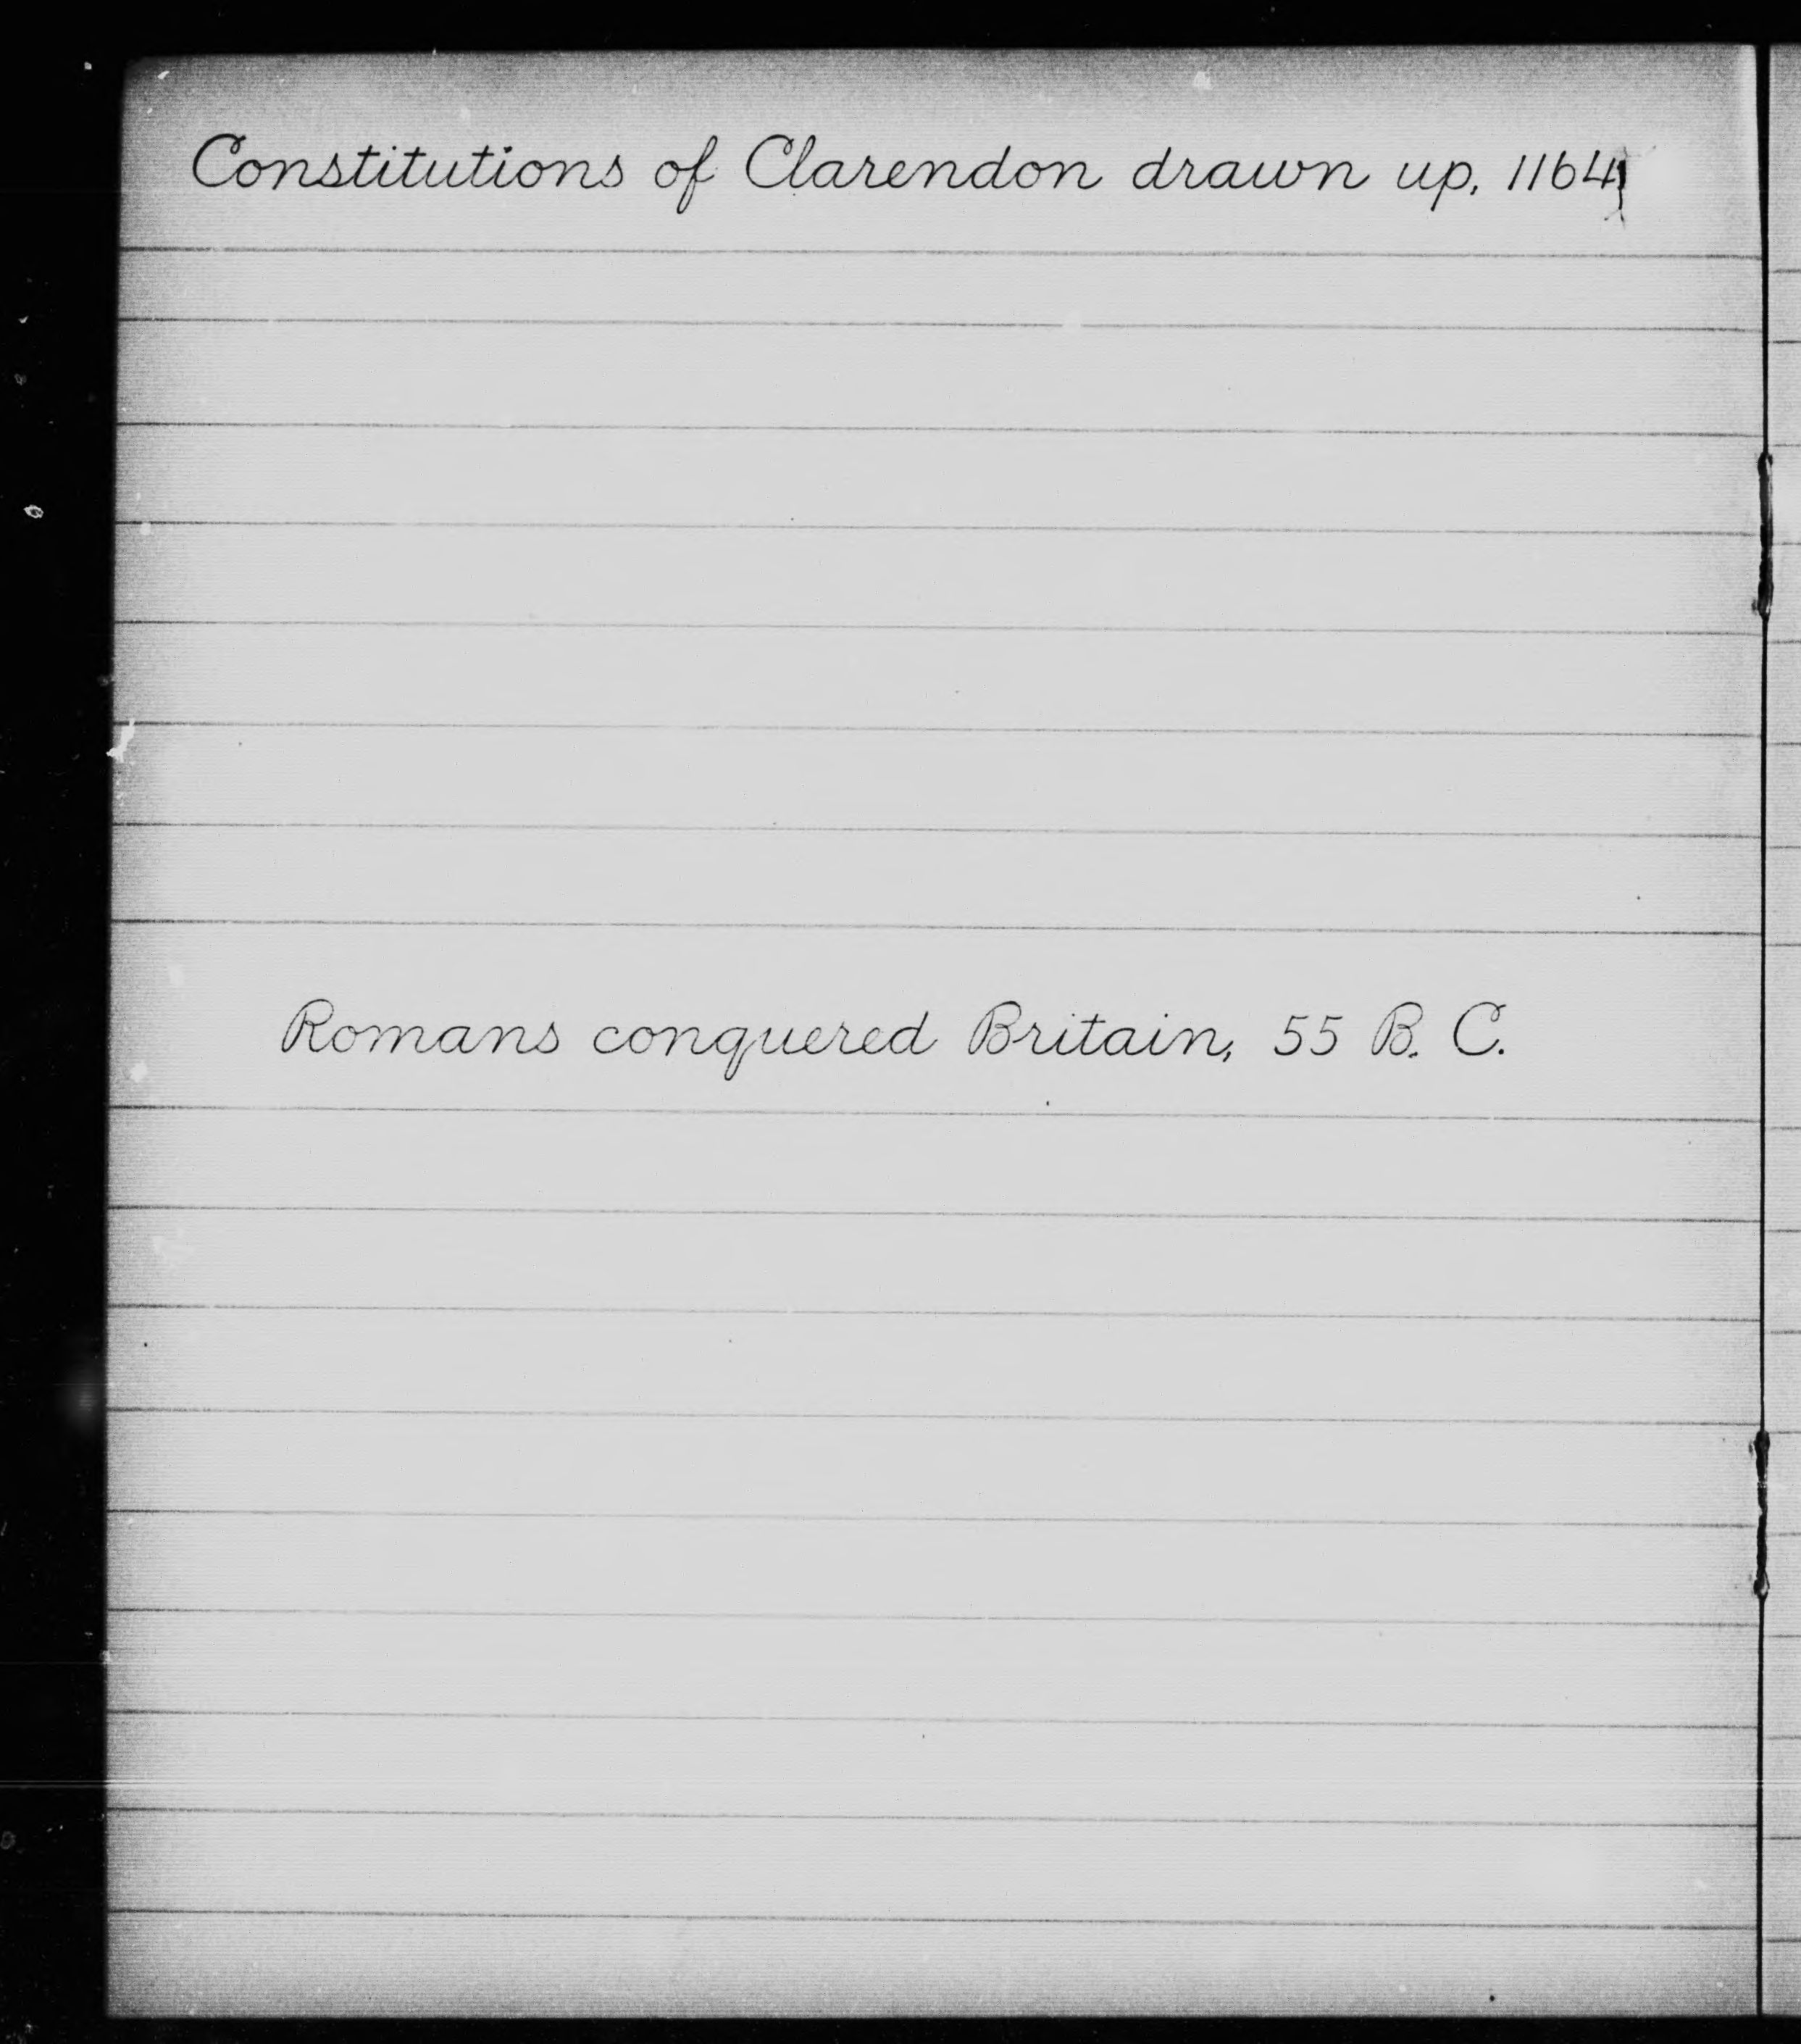 Constitutions of Clarendon drawn up, 1164
Romans conquered Britain, 55 B. C.